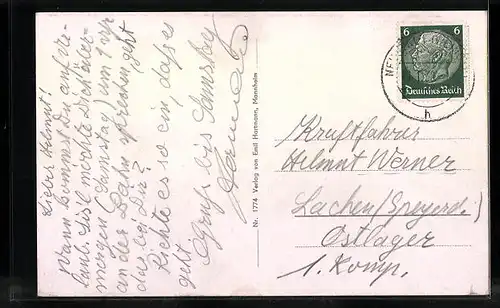 Lieber Helmut!
Wann kommst Du auf Ur-
laub. Will möchte Dich über-
morgen (Samstag) um 1 Uhr
an der Bahn sprechen, geht
das bei Dir?
Richte es so ein, daß es
geht
Gruß bis Samstag
Nr. 1774 Verlag von Emil Hartmann, Mannheim
6 6
Deutsches Reich
h
Kraftfahrer
Helmut Werner
Lachen (Speyerd.)
Ostlager
1. Komp.